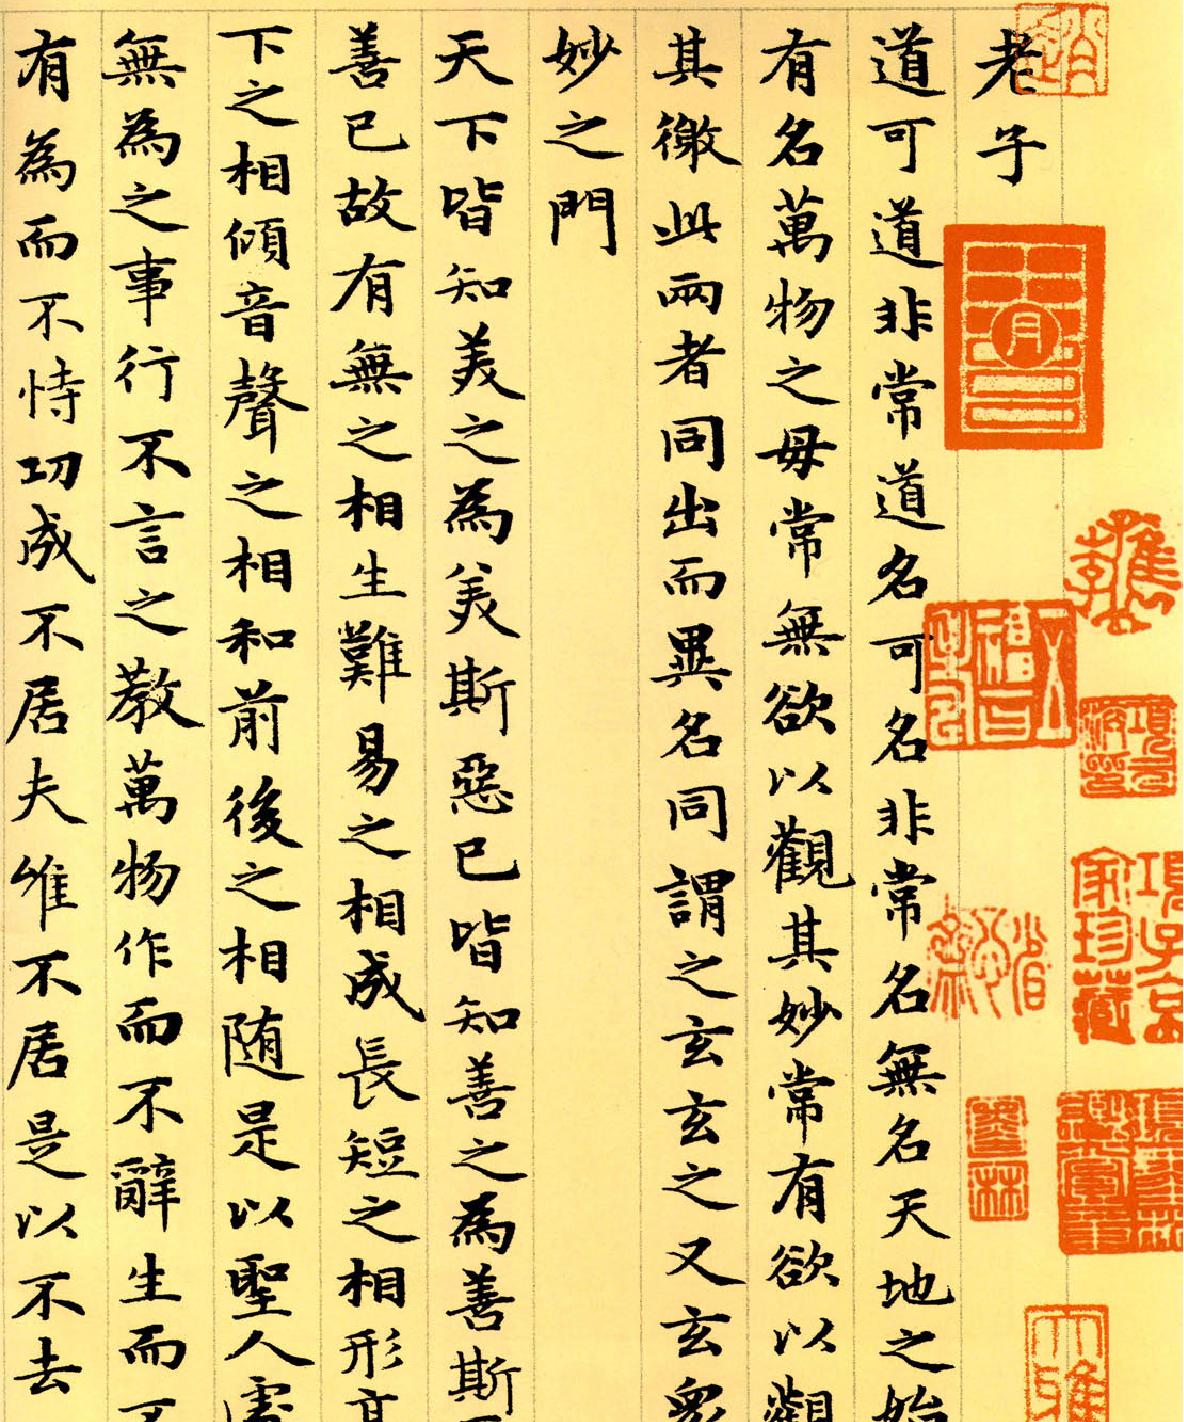 老子
道可道非常道名可名非常名無名天地之始
有名萬物之母常無欲以觀其妙常有欲以觀
其徼此兩者同出而異名同謂之玄玄之又玄衆
妙之門
天下皆知美之為美斯惡已皆知善之為善斯
善已故有無之相生難易之相成長短之相形高
下之相傾音聲之相和前後之相随是以聖人處
無為之事行不言之教萬物作而不辭生而不
有為而不恃功成不居夫唯不居是以不去
項子京家珍藏
墨林